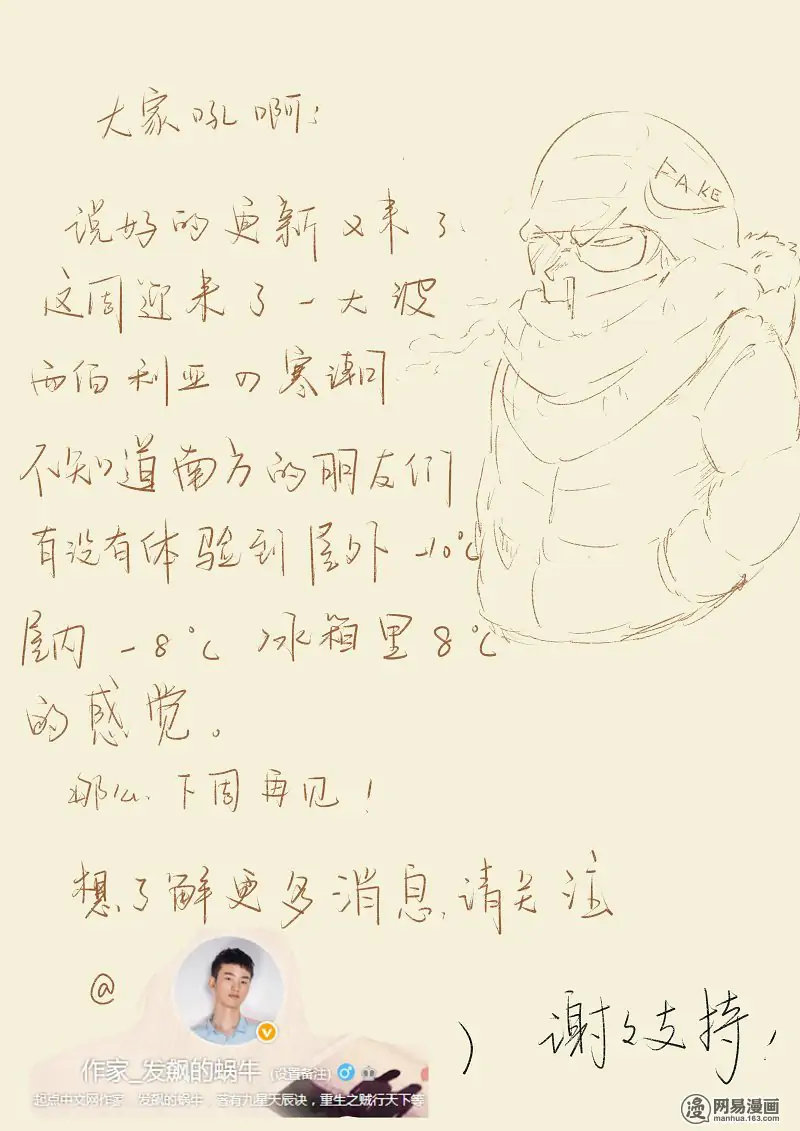 大家吼啊：
FAKE
说好的更新又来了
这周迎来了一大波
西伯利亚の寒潮
不知道南方的朋友们
有没有体验到屋外-10℃
屋内-8℃冰箱里8℃
的感觉。
那么.下周再见！
想了解更多消息,请关注
@
作家_发飙的蜗牛 (设置备注)
起点中文网作家 发飙的蜗牛，著有九星天辰诀，重生之贼行天下等
) 谢々支持！
漫 网易漫画
manhua.163.com